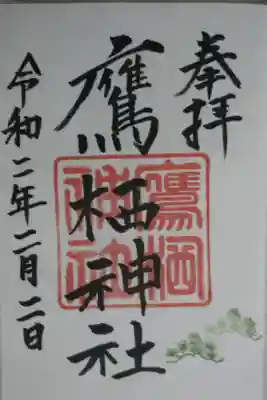 奉拝
鷹栖神社
令和二年二月二日
鷹栖神社